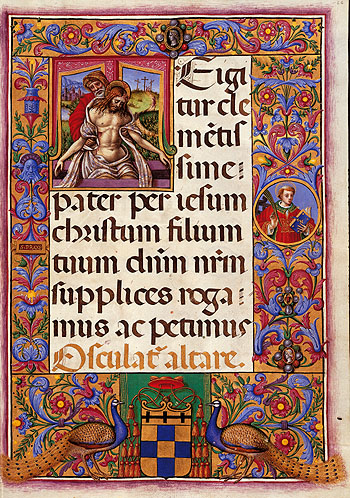 Eigi
tur cle
mētis
sime=
pater per iesum
christum filium
tuum dūm nrm̄
supplices roga=
mus ac petimus
Osculat᷑ altare.